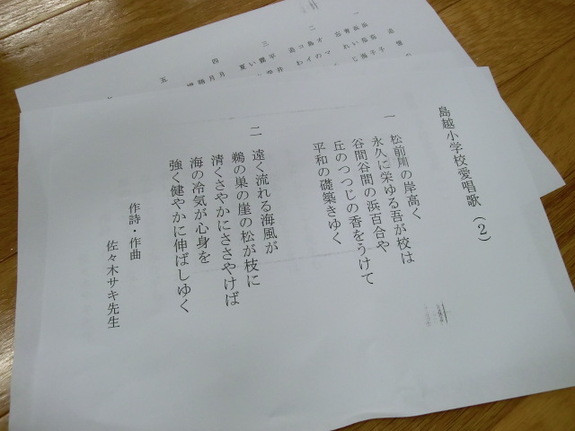 島越小学校愛唱歌（２）
一　松前川の岸高く
永久に栄ゆる吾が校は
谷間谷間の浜百合や
丘のつつじの香をうけて
平和の礎築きゆく
二　遠く流れる海風が
鵜の巣の崖の松が枝に
清くさやかにささやけば
海の冷気が心身を
強く健やかに伸ばしゆく
作詩・作曲
佐々木サキ先生
一
二
三
四
五